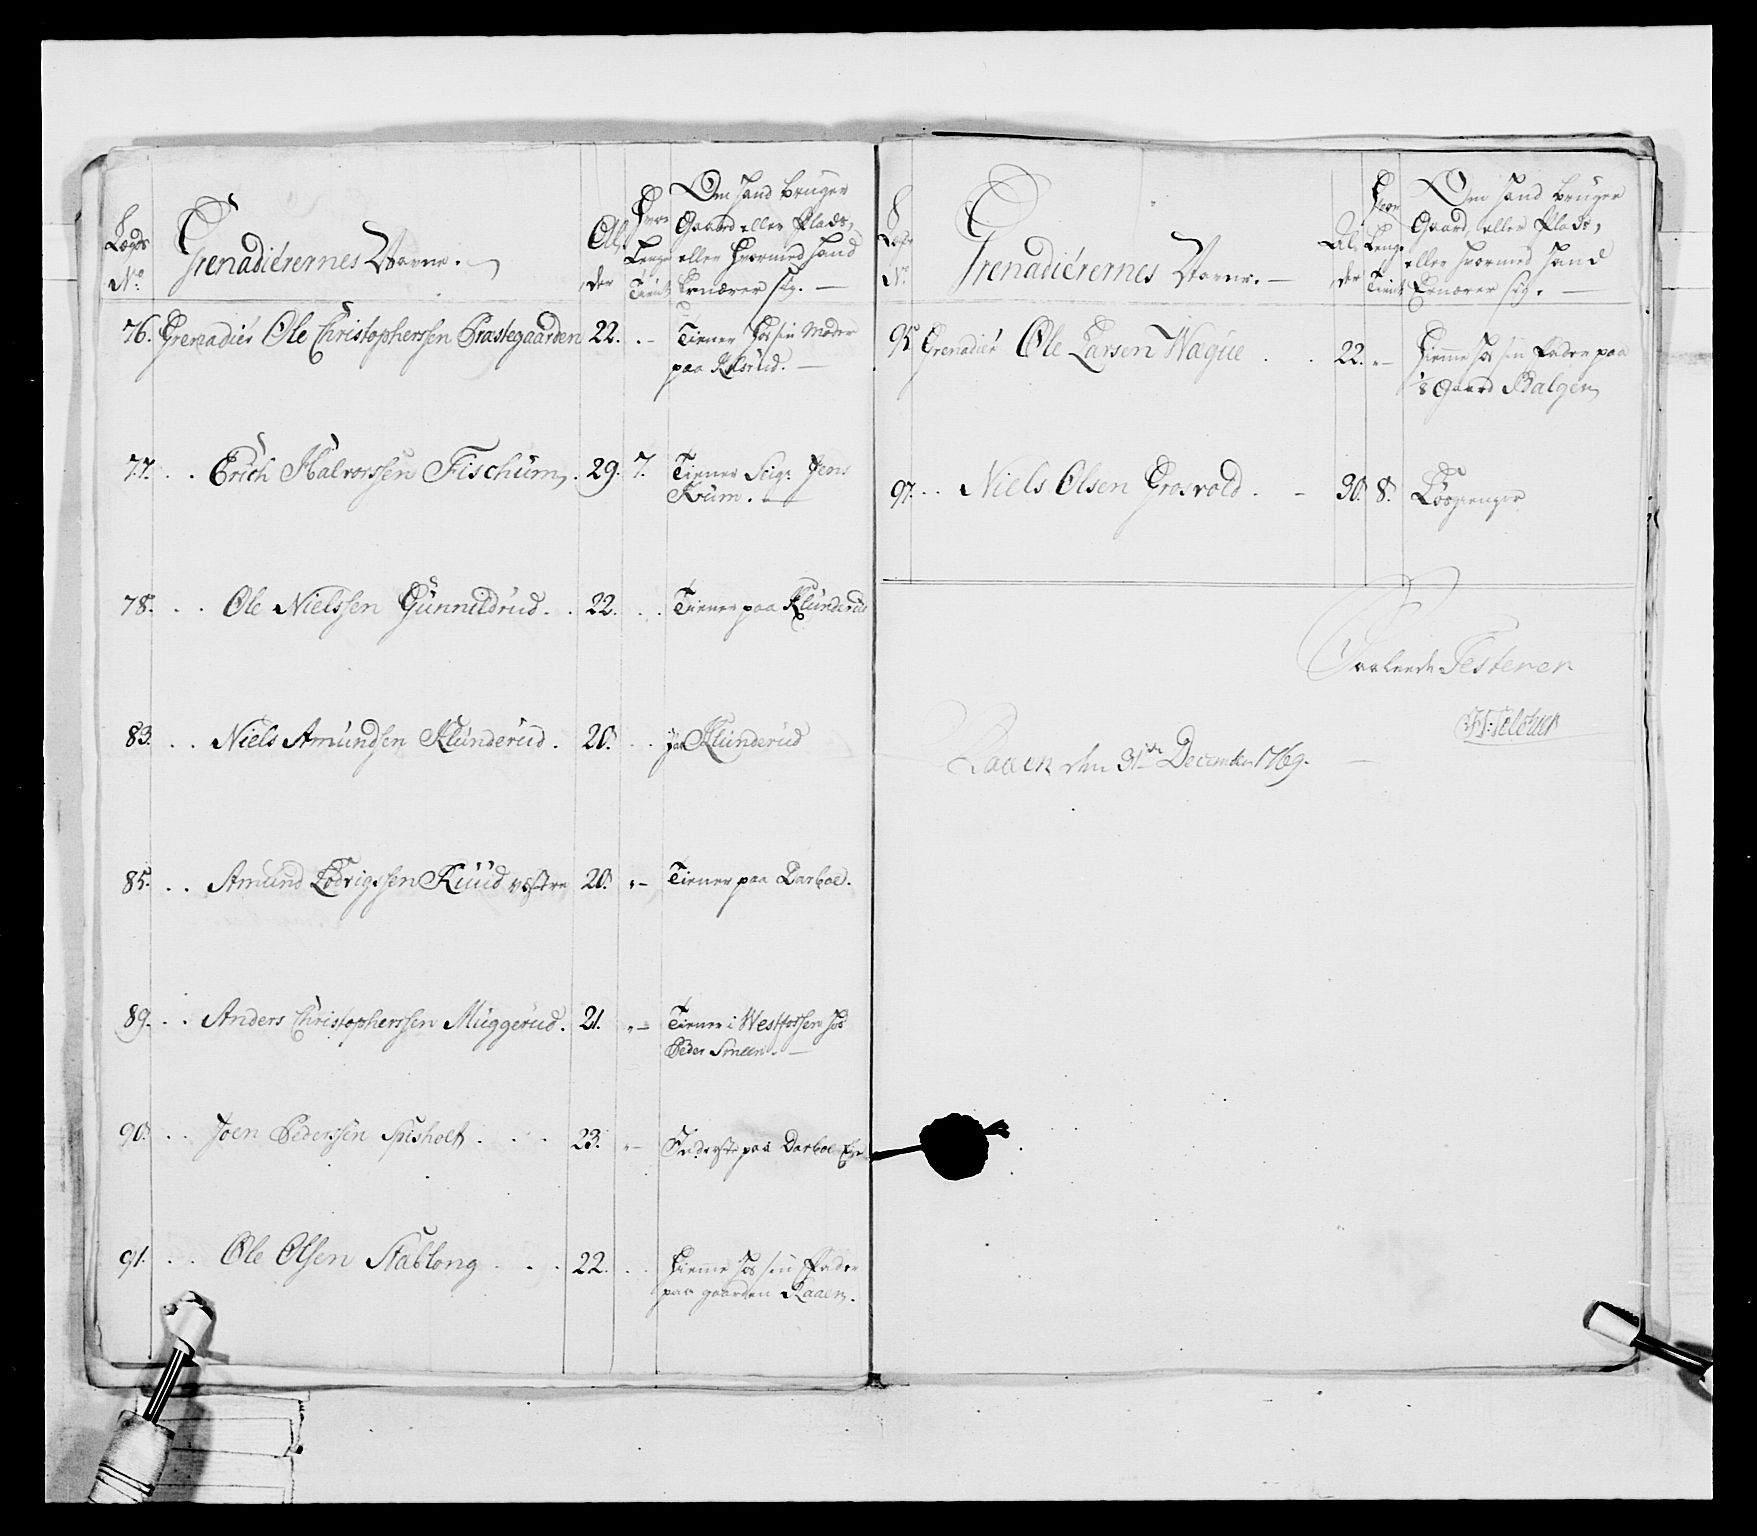 Lægds
No
Grenadiérernes Navne.
Al,
der
Hvor
Lenge
Tient
Om hand bruger
Gaard eller Plads,
eller hvormed hand
Ernærer sig. —
76. Grenadiér Ole Christopherssen Præstegaarden 22. . — Tiener hos sin Moder
paa Kilsrud. —
77. . . Erich Halvorssen Fischum. 29. 7. Tiener Seigr Jens
Krum. —
78. . . Ole Nielssen Gunnildrud. . 22. . . Tiener paa Klunderud
83. . . Niels Amundsen Klunderud. 20. . . paa Klunderud
85. . . Amund Lodvigssen Ruud vestre 20. „ — Tiener paa Darboe.
89. . . Anders Christopherssen Muggerud. 21. „ — Tiener i Westfossen hos
Peder Smeen. —
90. . . Joen Pederssen Spisholt . . . 23. „ — Inderste paa Darboe
91. . . Ole Olssen Stablong . . . 22. . . Hiemme hos sin Fader
paa gaarden Raaen.
Lægds
No
Grenadiérernes Navne. —
Al,
der
Hvor
Lenge
Tient
Om hand bruger
Gaard, eller Plads,
eller hvormed hand
Ernærer sig. —
95. Grenadiér Ole Larsen Waque . . 22. „ — Hiemme hos sin Fader paa
Gaard Balgen
97. . . Niels Olsen Grosvold. — 30. 8. Løsgienger
Saaleedes Testerer
Raaen den 31te December 1769. —